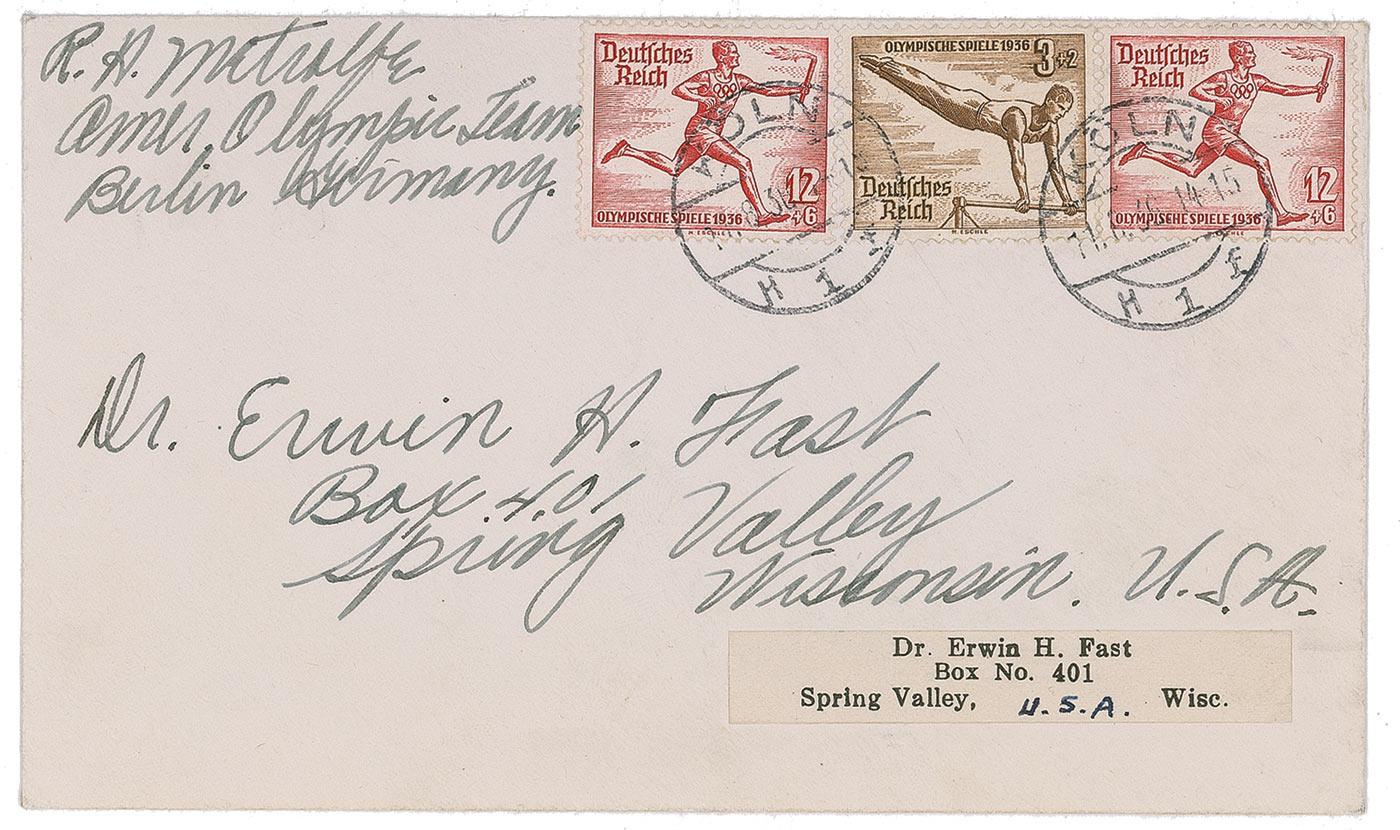 R. H. Metcalfe
Amer. Olympic Team
Berlin Germany.
Deutsches
Reich
12
+6
OLYMPISCHE SPIELE 1936
M. ESCHLE
OLYMPISCHE SPIELE 1936
3+2
Deutsches
Reich
M. ESCHLE
Deutsches
Reich
12
+6
OLYMPISCHE SPIELE 1936
M. ESCHLE
KÖLN
H 1
KÖLN
14-15
H 1 f
Dr. Erwin H. Fast
Box 401
Spring Valley
Wisconsin. U.S.A.
Dr. Erwin H. Fast
Box No. 401
Spring Valley, U.S.A. Wisc.